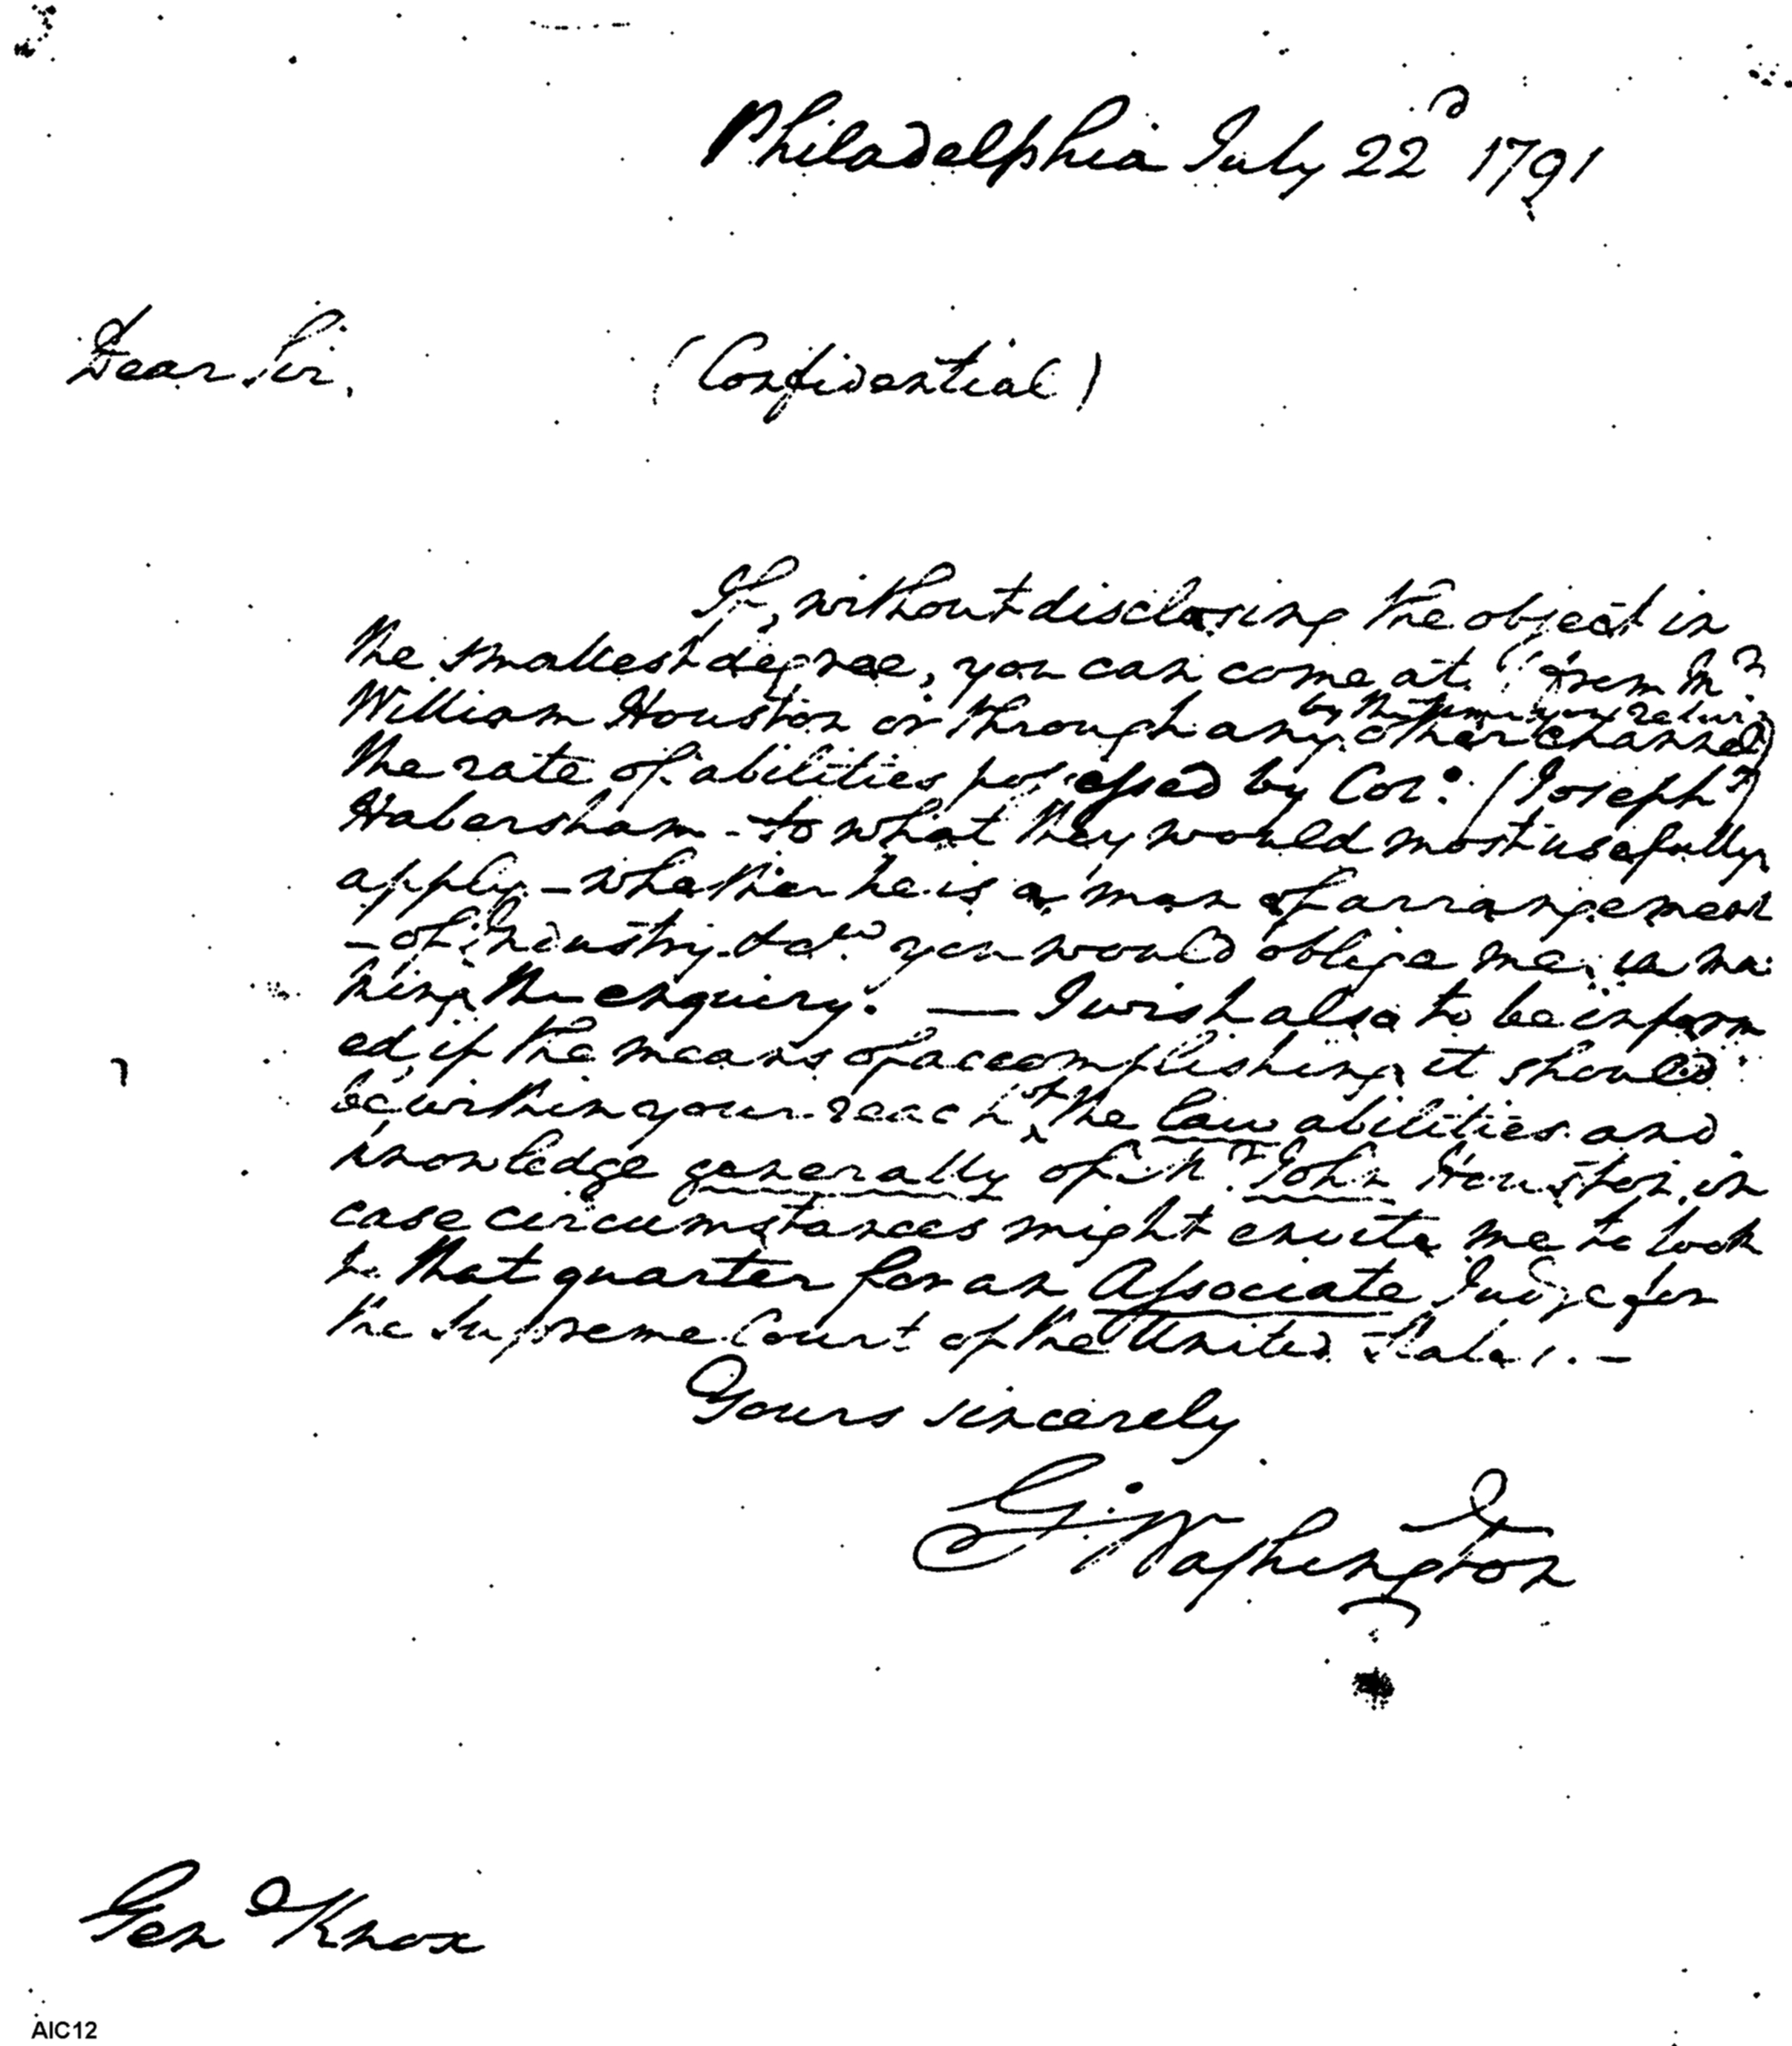 Philadelphia July 22d 1791
Dear Sir, (Confidential)
If, without disclosing the object in
the smallest degree, you can come at (from Mr
by the time you return
William Houston or through any other channel)
the rate of abilities possessed by Col: (Joseph)
Habersham - to what they would most usefully
apply - whether he is a man of arrangement
- of Industry - &ca. you would oblige me in ma:
king the enquiry. — I wish also to be inform
ed, if the means of accomplishing it should
be within your reach, of the law abilities and
knowledge generally of Mr. John Houston, in
case circumstances might envite me to look
to that quarter for an Associate Judge for
the Supreme Court of the United States. —
Yours sincerely
G: Washington
Gen Knox
AIC12